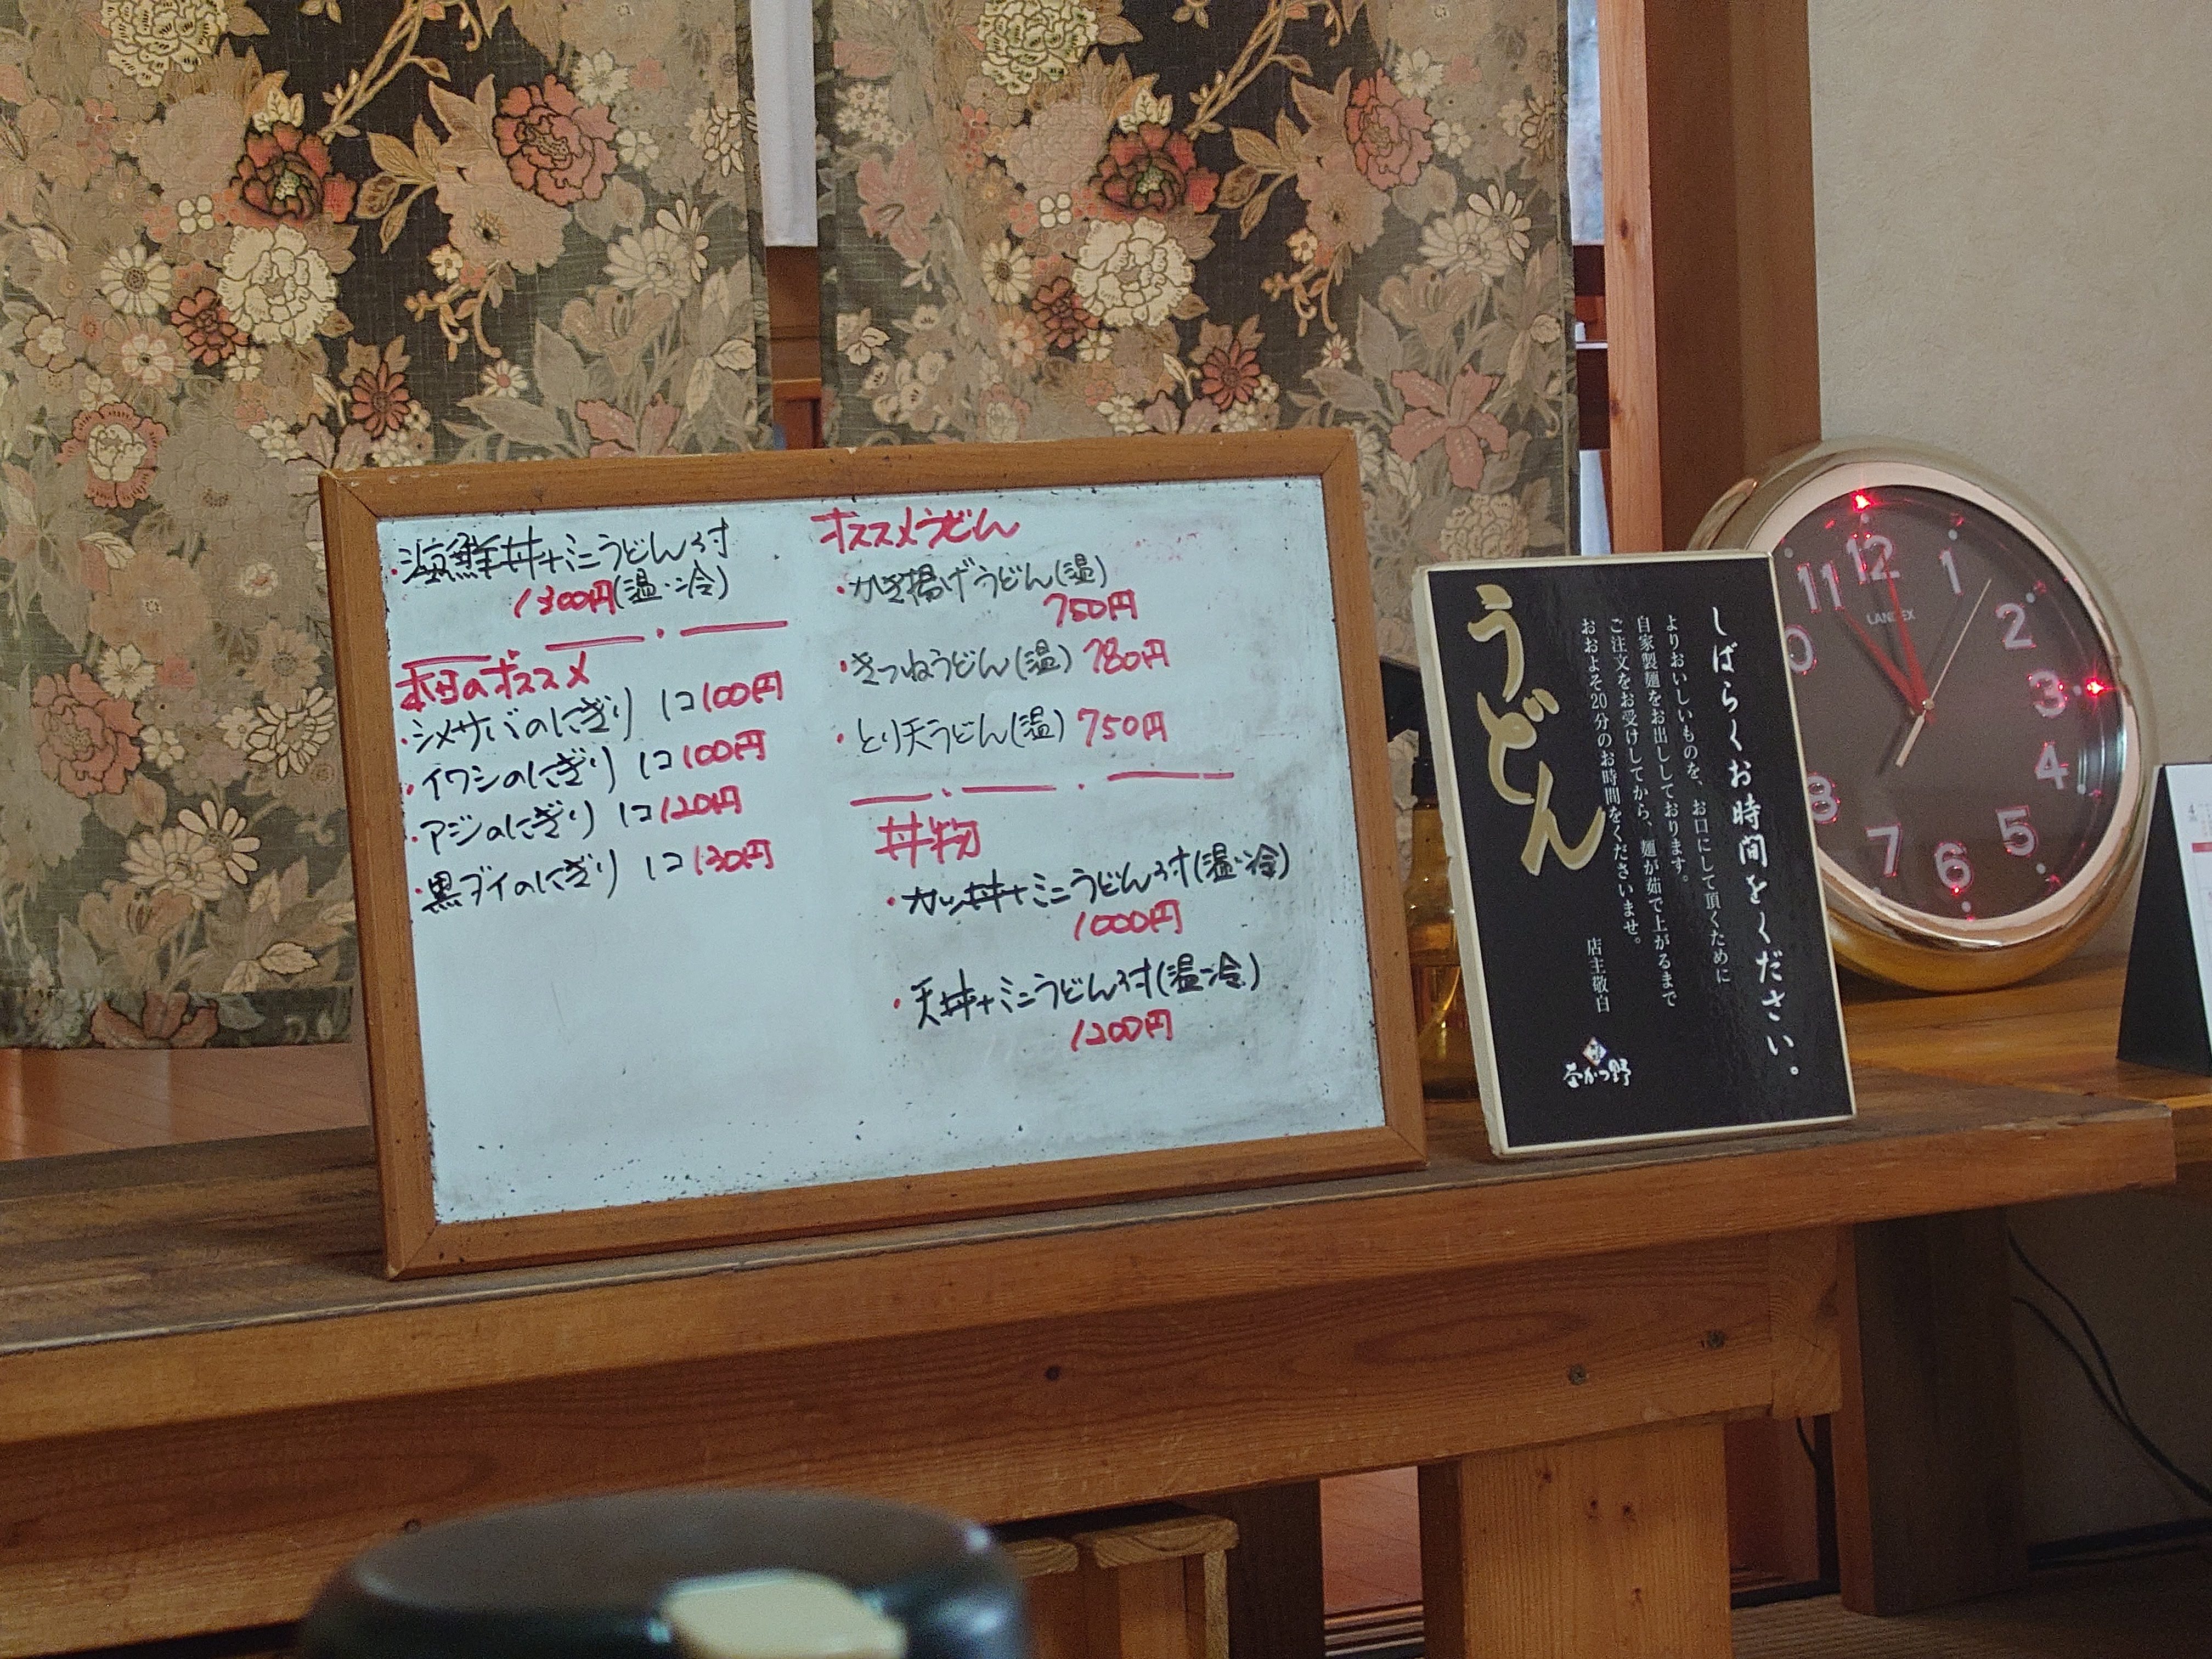 ・海鮮丼+ミニうどん付
1300円(温・冷)
本日のオススメ
・シメサバのにぎり 1コ100円
・イワシのにぎり 1コ100円
・アジのにぎり 1コ120円
・黒ダイのにぎり 1コ130円
オススメうどん
・かき揚げうどん(温)
750円
・きつねうどん(温) 780円
・とり天うどん(温) 750円
丼物
・カツ丼+ミニうどん付(温・冷)
1000円
・天丼+ミニうどん付(温・冷)
1200円
しばらくお時間をください。
よりおいしいものを、お口にして頂くために
自家製麺をお出ししております。
ご注文をお受けしてから、麺が茹で上がるまで
おおよそ20分のお時間をくださいませ。
店主敬白
うどん
LANDEX
11 12 1 2 3 4 5 6 7 8 0